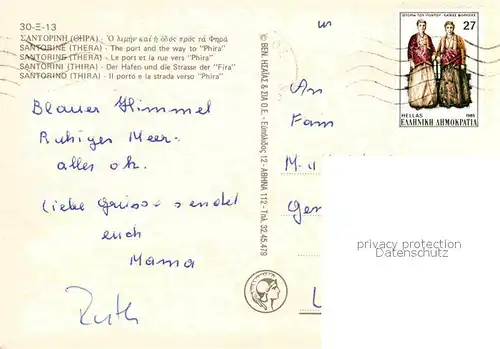 30-Ξ-13
ΣΑΝΤΟΡΙΝΗ (ΘΗΡΑ) - Ὁ λιμὴν καὶ ἡ ὁδὸς πρὸς τὰ Φηρά
SANTORINE (THERA) - The port and the way to "Phira"
SANTORINE (THERA) - Le port et la rue vers "Phira"
SANTORINI (THIRA) - Der Hafen und die Strasse der "Fira"
SANTORINO (THIRA) - Il porto e la strada verso "Phira"
Blauer Himmel
Ruhiges Meer
alles ok.
liebe Grüsse sendet
euch
Mama
Ruth
© BEN. ΗΣΑΪΑΣ & ΣΙΑ Ο.Ε. - Εὐπόλιδος 12 - ΑΘΗΝΑ 112 - Τηλ. 32.45.479
An
Fam
27
HELLAS
1985
ΕΛΛΗΝΙΚΗ ΔΗΜΟΚΡΑΤΙΑ
privacy protection
Sammlerparadies